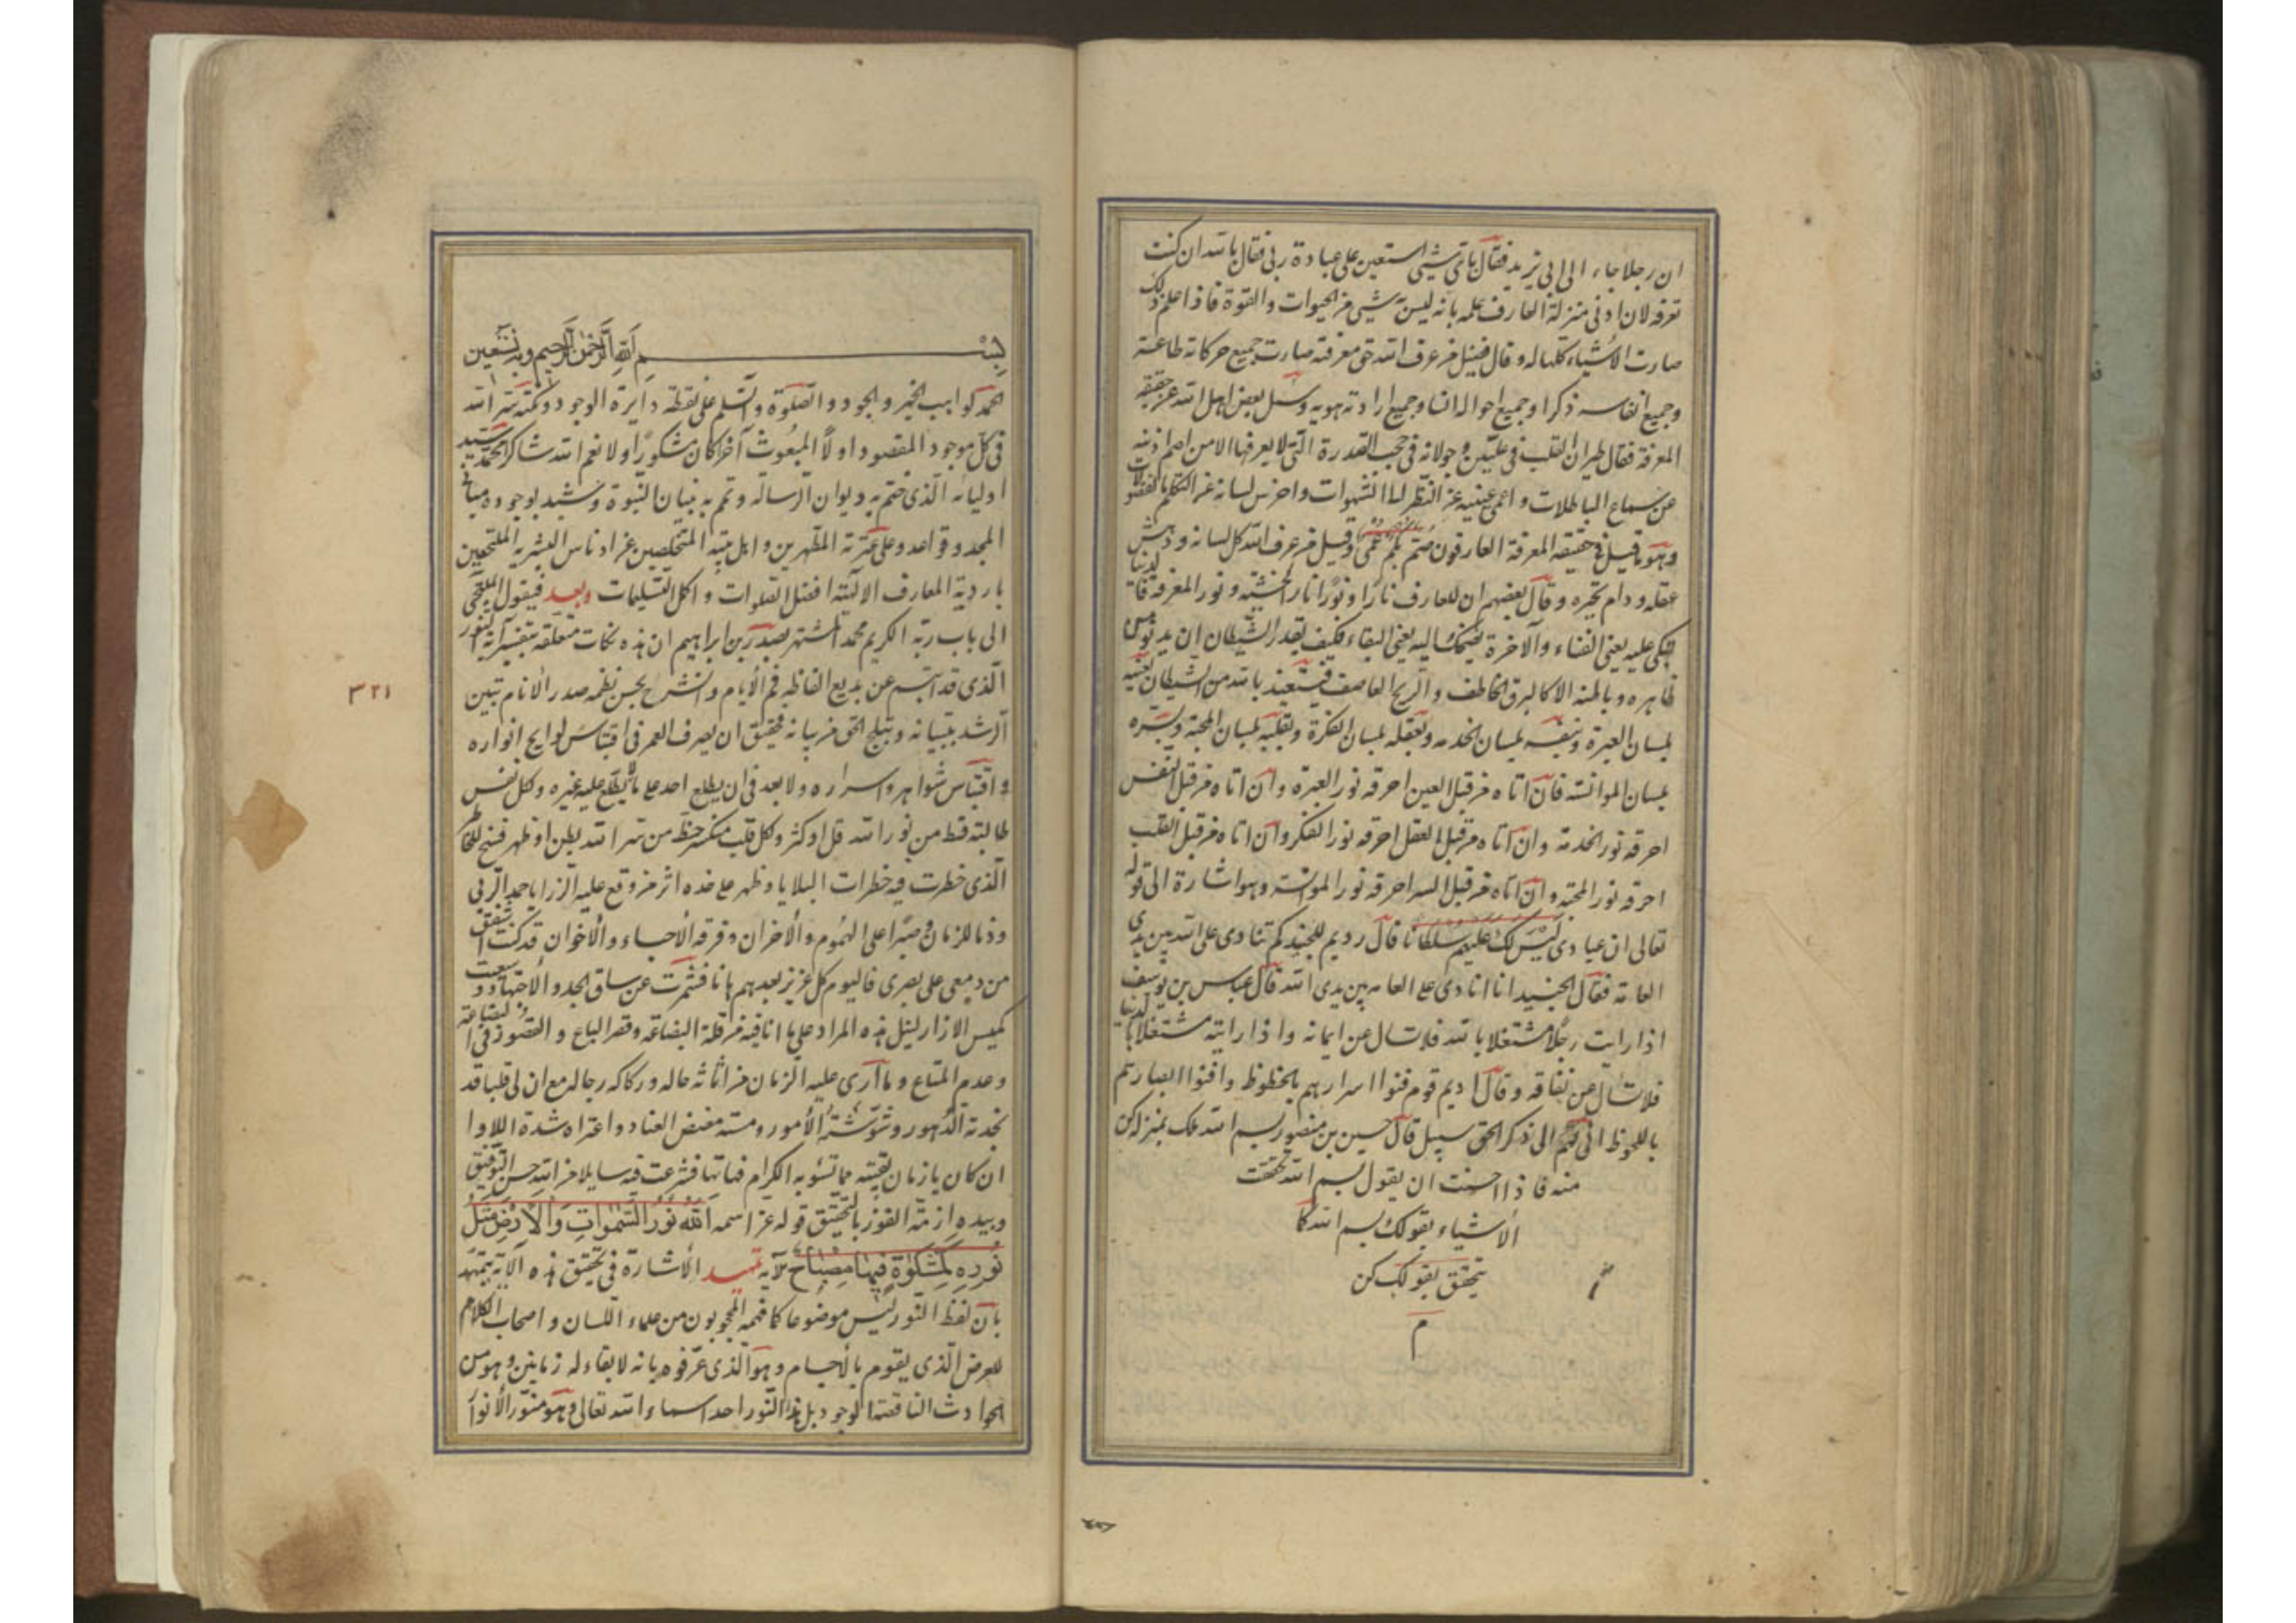 ان رجلا جاء الى ابى يزيد فقال باى شىء استعين على عبادة ربى فقال بالله ان كنت
تعرفه لان ادنى منزلة العارف علمه بانه ليس شىء من الحيوات والقوة فاذا علم ذلك
صارت الأشياء كلها له وقال فضيل من عرف الله حق معرفته صارت جميع حركاته طاعة
وجميع انفاسه ذكرا وجميع احواله انسا وجميع اراداته هوية وسئل بعض اهل الله عن حقيقة
المعرفة فقال طيران القلب فى عليين وجولانه فى حجب القدرة التى لا يعرفها الا من اصم اذنه
عن سماع الباطلات واعمى عينيه عن النظر الى الشهوات واخرس لسانه عن التكلم بالفضولات
وهو ما قيل فى حقيقة المعرفة العارفون صم بكم عمى وقيل من عرف الله كل لسانه ودهش
عقله ودام تحيره وقال بعضهم ان للعارف نارا ونورا نار الخشية ونور المعرفة فالدنيا
تبكى عليه بعين الفناء والآخرة تضحك اليه بعين البقاء فكيف يقدر الشيطان ان يدنو من
ظاهره وباطنه الا كالبرق الخاطف والريح العاصف فيستعيذ بالله من الشيطان بعينيه
بلسان العبرة وبنفسه بلسان الخدمه وبعقله بلسان الفكرة وبقلبه بلسان المحبة وبسره
بلسان الموانسة فان اتاه من قبل العين احرقه نور العبرة وان اتاه من قبل النفس
احرقه نور الخدمة وان اتاه من قبل العقل احرقه نور الفكر وان اتاه من قبل القلب
احرقه نور المحبة وان اتاه من قبل السر احرقه نور الموانسة وهو اشارة الى قوله
تعالى ان عبادى ليس لك عليهم سلطان قال رويم للجنيد كم تنادى على الله بين يدى
العامة فقال الجنيد انا انادى على العامه بين يدى الله قال عباس بن يوسف
اذا رايت رجلا مشتغلا بالله فلا تسال عن ايمانه واذا رايته مشتغلا بالدنيا
فلا تسال عن نفاقه وقال اديم قوم فنوا اسرارهم بالحظوظ وافنوا ابصارهم
باللحوظ انى لهم الى ذكر الحق سبيل قال حسين بن منصور بسم الله منك بمنزله كن
منه فاذا احسنت ان يقول بسم الله تحققت
الأشياء بقولك بسم الله كما
يتحقق بقولك كن
م
بسم الله الرحمن الرحيم وبه نستعين
الحمد لواهب الخير والجود والصلوة والسلم على نقطة دايرة الوجود ونكتة سر الله
فى كل موجود المقصود اولا المبعوث آخرا كان مشكورا ولا نعم الله شاكرا محمد سيد
اوليائه الذى ختم به ديوان الرسالة وتمم به بنيان النبوة وشيد بوجوده مبانى
المجد وقواعد وعلى عترته المطهرين واهل بيته المتخلصين عن ادناس البشرية الملتحفين
بارديه المعارف الالهية افضل الصلوات واكل التسليمات وبعد فيقول الملتجى
الى باب ربه الكريم محمد المشتهر بصدر بن ابراهيم ان هذه نكات متعلقه بتفسير آية النور
الذى قد ابتسم عن بديع الفاظه فم الأيام وانشرح بحسن نظمه صدر الأنام تبين
الرشد بتبيانه وتبلج الحق من بيانه فحقيق ان يصرف العمر فى اقتباس لوايح انواره
واقتباس شواهر واسراره ولا بعد فى ان يطلع احد على ما لم يطلع عليه غيره ولكل نفس
طالبة قسط من نور الله قل او كثر ولكل قلب منكسر حظ من سر الله بطن او ظهر فسنح للخاطر
الذى خطرت فيه خطرات البلايا وظهر على خده اثر من وقع عليه الرزايا
وذما للزمان وصبرا على الهموم والأحزان وفرقه الأحباء والأخوان قد كنت اشفق
من دمعى على بصرى فاليوم كل عزيز بعدهم هانا فشمرت عن ساق الجد والأجتهاد وسعيت
كميس الازار لنيل هذه المراد على ما انا فيه من قلة البضاعة وقصر الباع والقصور فى الصناعة
وعدم المتاع وما ارى عليه الزمان من اثاثه حاله وركاكه رجاله مع ان لى قلبا قد
خدته الدهور وشوشته الأمور ومسته مضض العناد واعتراه شدة اللاوا
ان كان يا زمان بقية مما تسوبه الكرام فهاتها فشرعت فيه سايلا من الله حسن التوفيق
وبيده ازمة الفوز بالتحقيق قوله عز اسمه الله نور السموات والارض مثل
نوره كمشكوة فيها مصباح الآية تمهيد الأشارة فى تحقيق هذه الآية يتمهد
بان لفظ النور ليس موضوعا كما فهمه المحجوبون من علماء اللسان واصحاب الكلام
للعرض الذى يقوم بالأجسام وهو الذى عرفوه بانه لا بقاء له زمانين وهو من
الحوادث الناقصة الوجود بل هذا النور احد اسماء الله تعالى وهو منور الأنوار
٣٢١